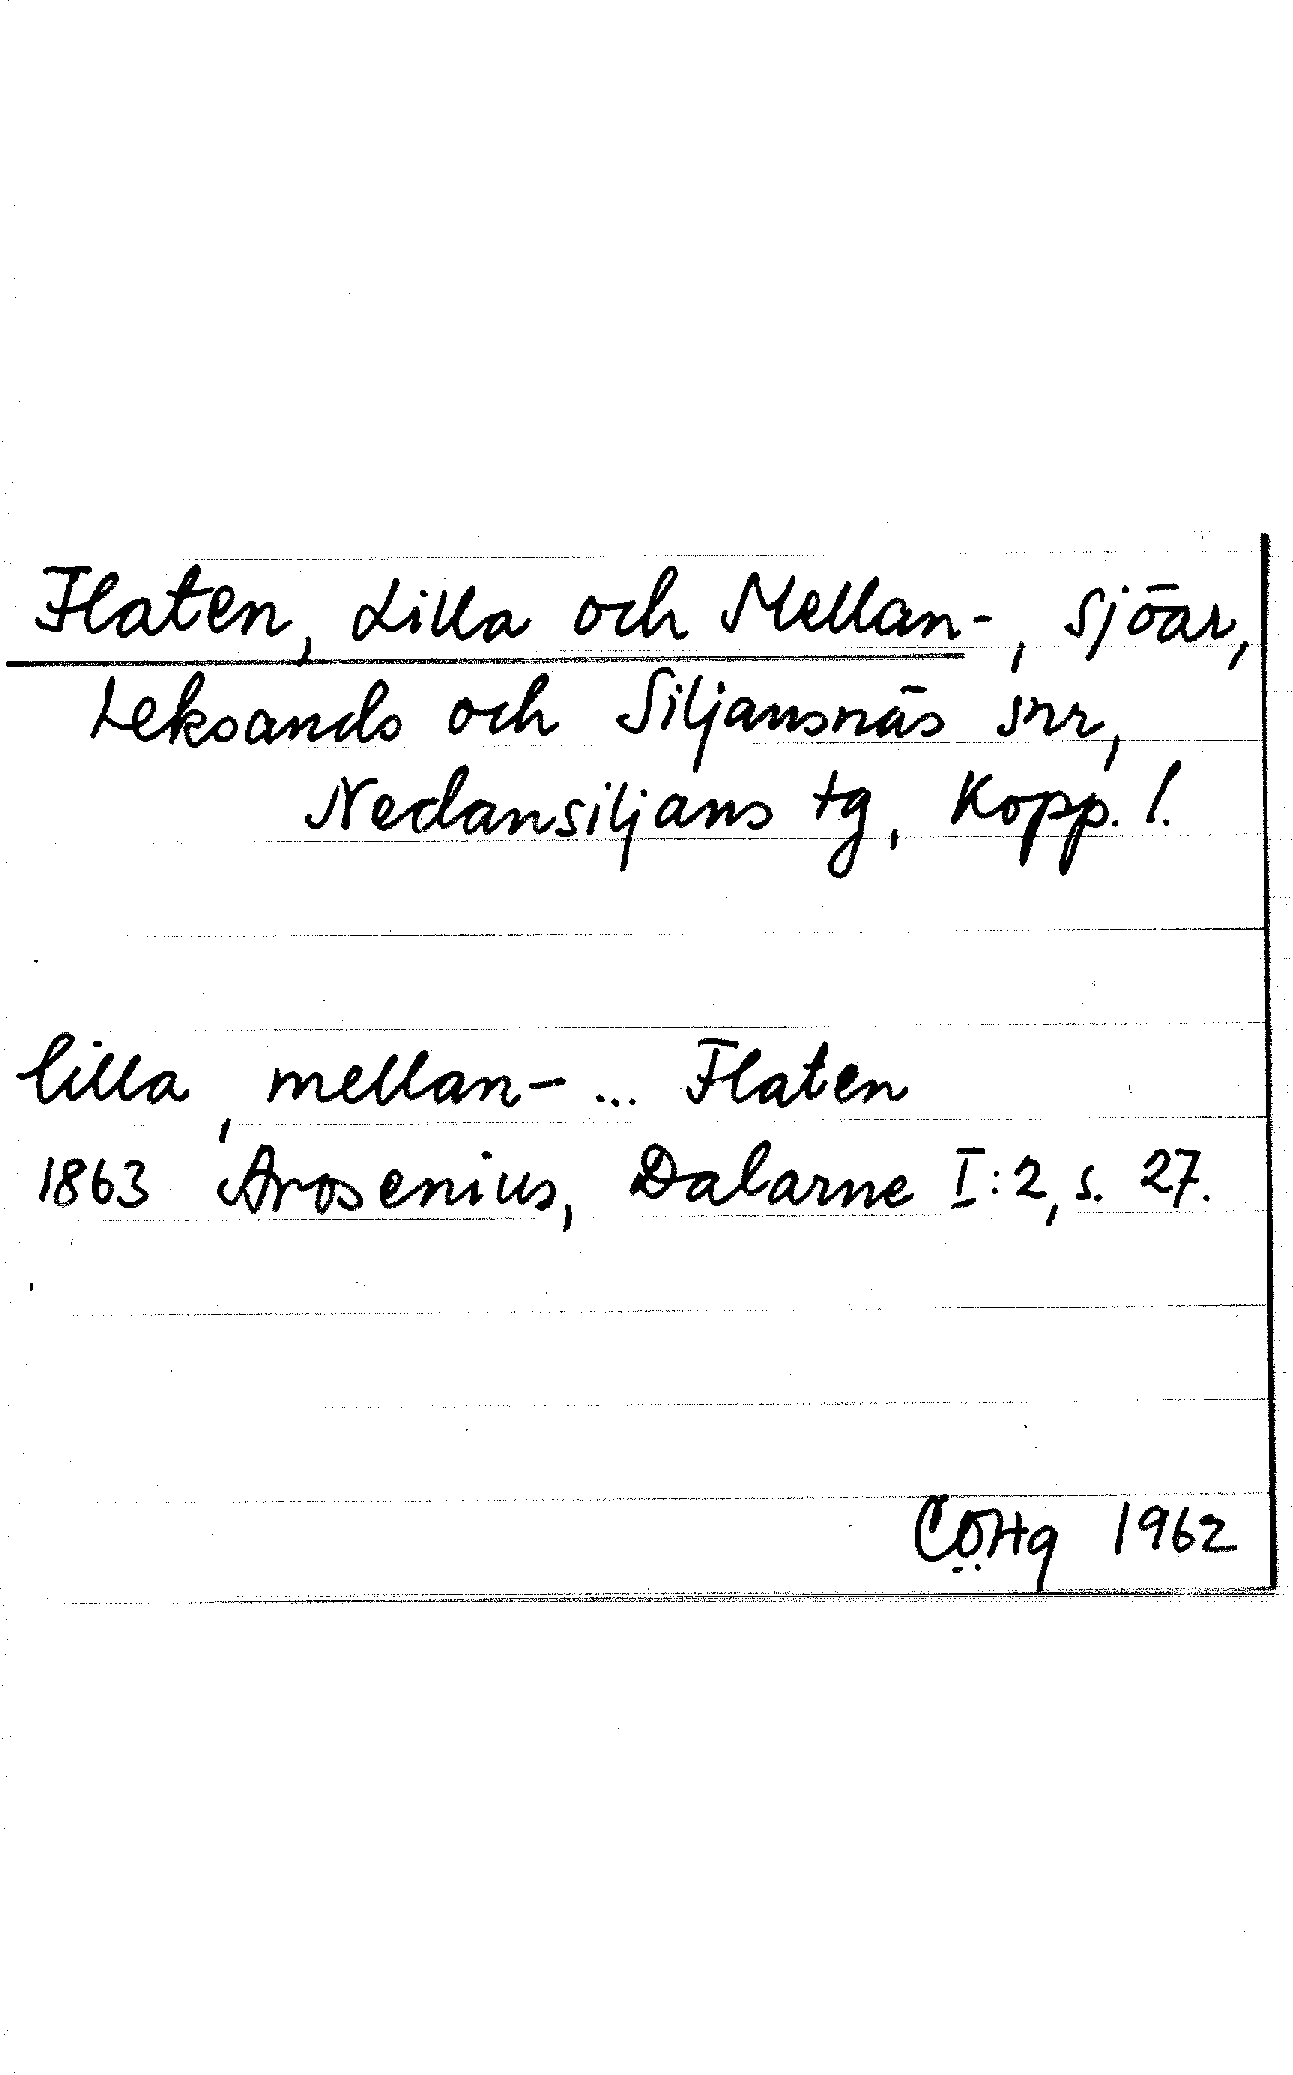 Flaten, Lilla och Mellan-, sjöar,
Leksands och Siljansnäs snr,
Nedansiljans tg, Kopp. l.
lilla, mellan- ... Flaten
1863 Arosenius, Dalarne I:2, s. 27.
CÖHg 1962